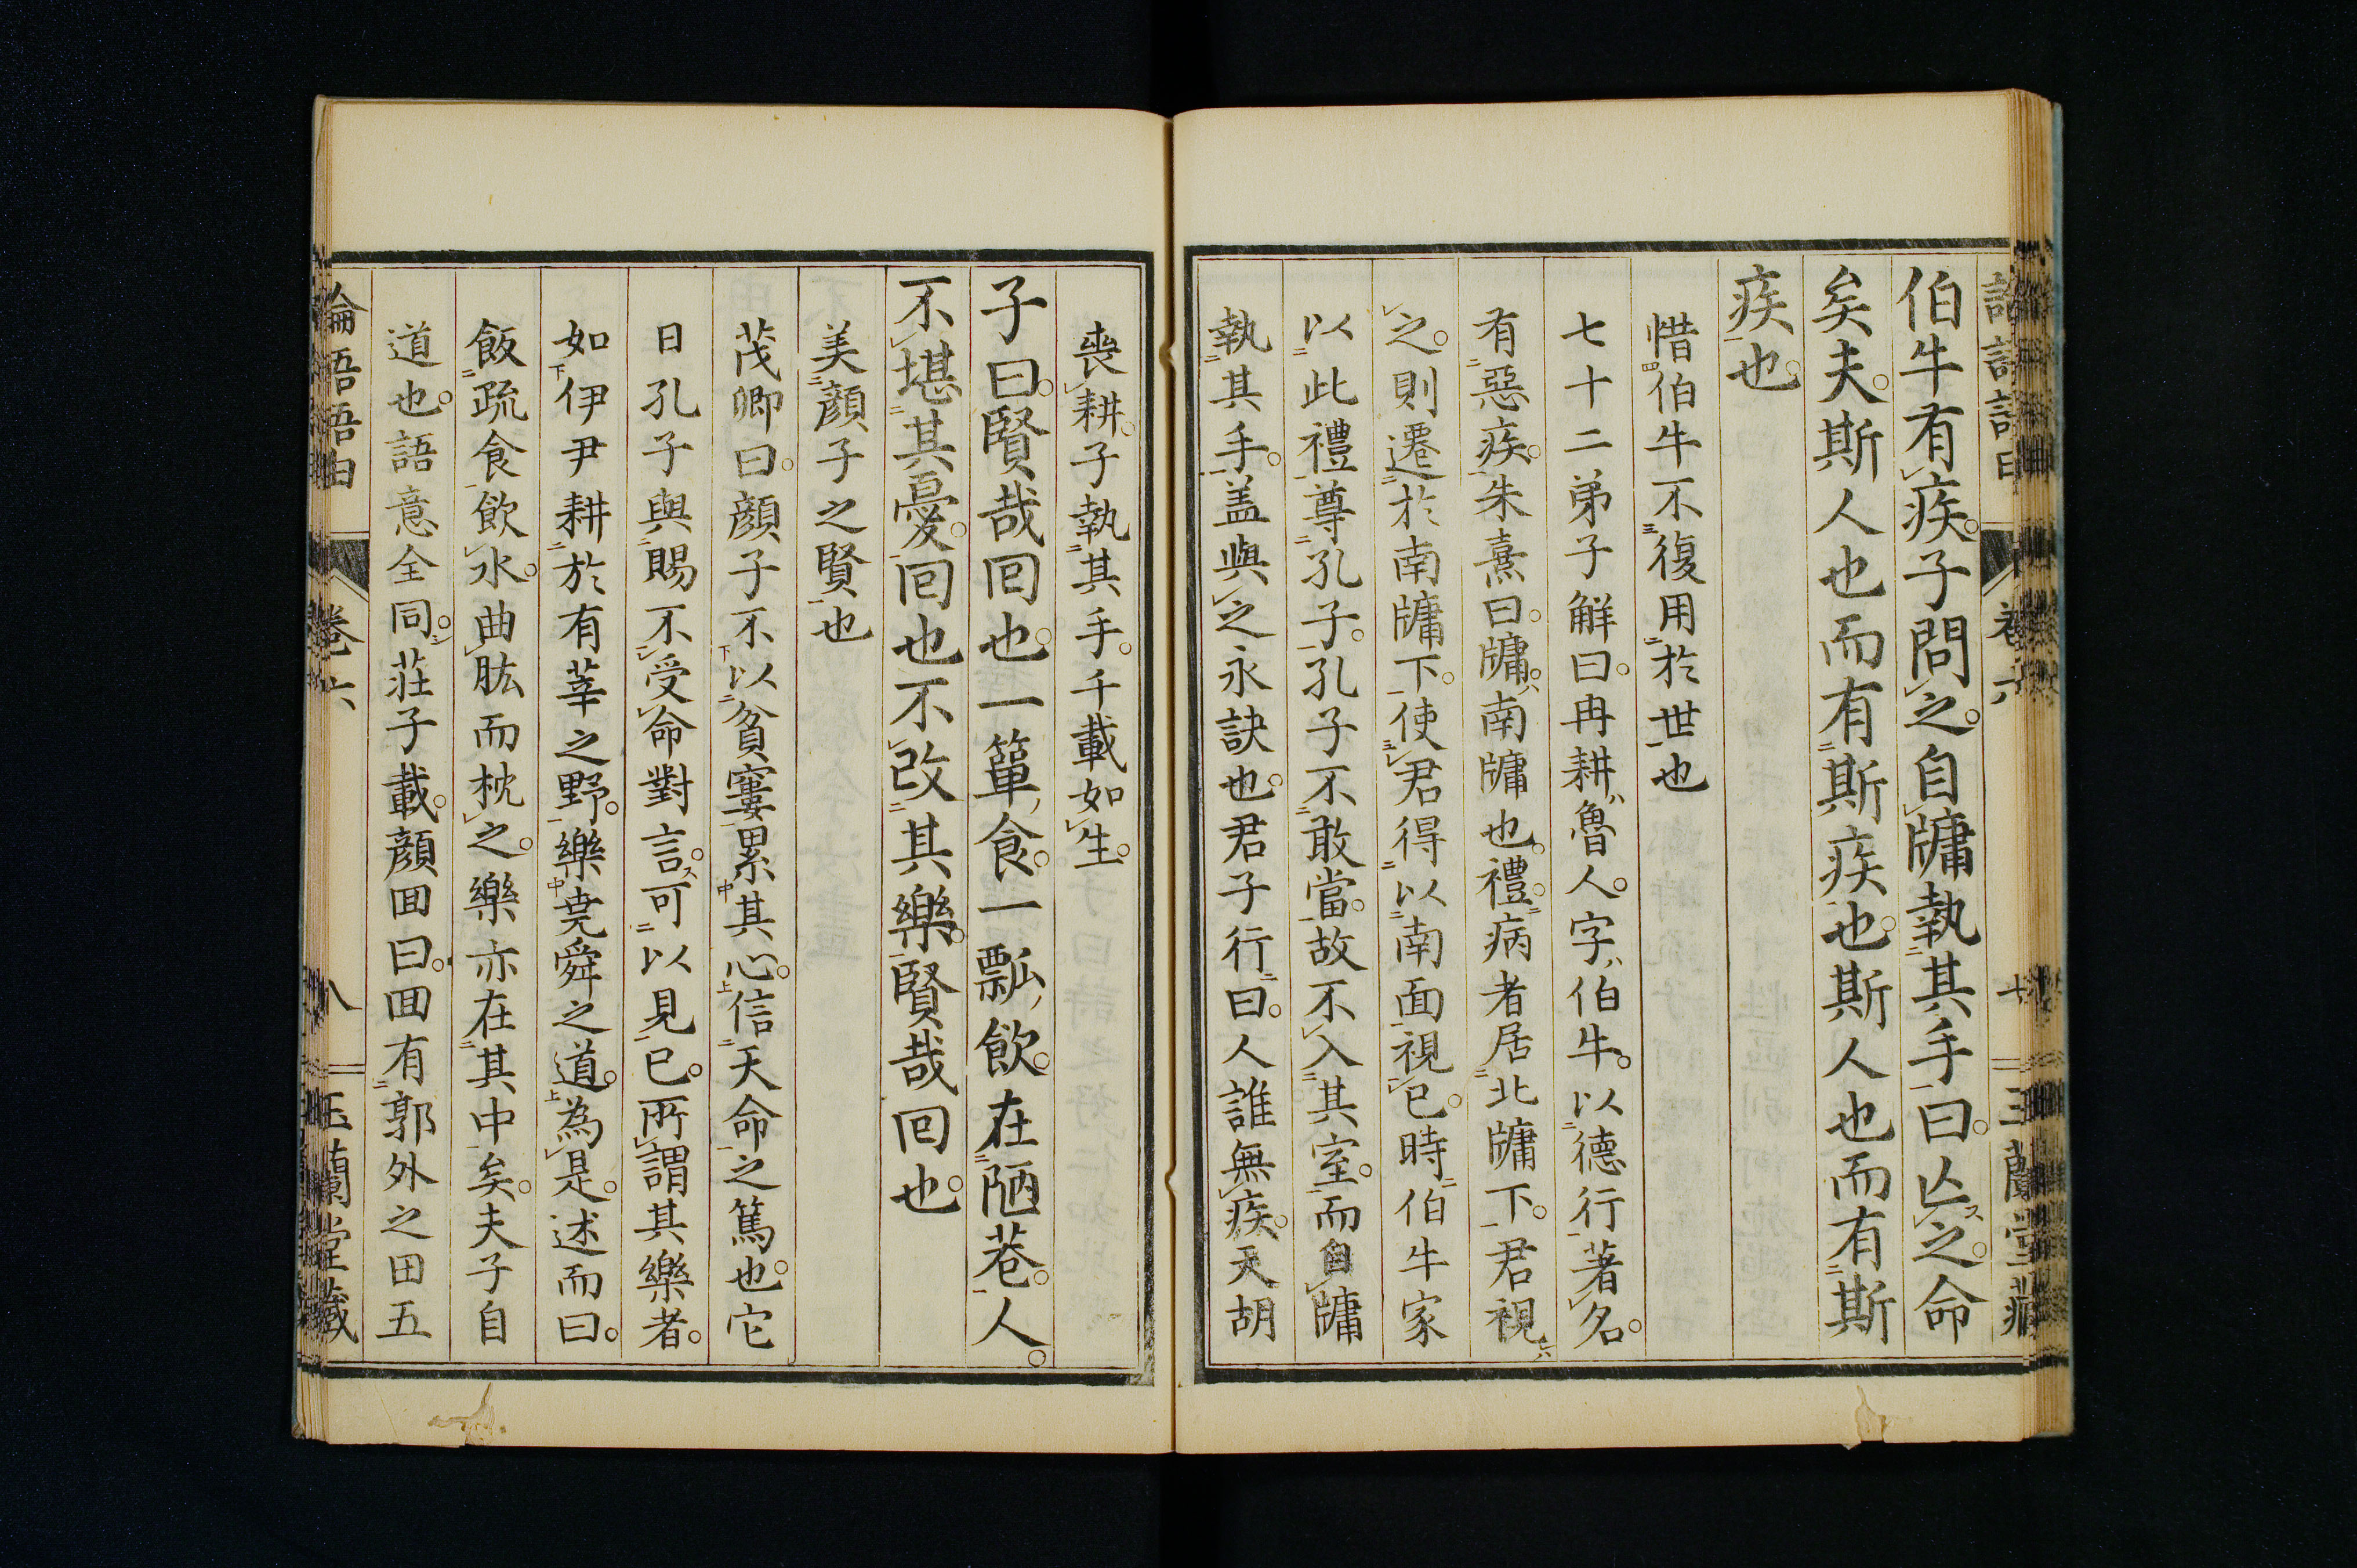 伯牛有疾。子問之。自牖執其手曰。亾之。命
矣夫。斯人也而有斯疾也。斯人也而有斯
疾也。
惜伯牛不復用於世也
七十二弟子解曰。冉耕魯人。字伯牛。以德行著名。
有惡疾。朱熹曰。牖。南牖也。禮。病者居北牖下。君視
之。則遷於南牖下。使君得以南面視已。時伯牛家
以此禮尊孔子。孔子不敢當。故不入其室。而自牖
執其手。盖與之永訣也。君子行曰。人誰無疾。天胡
喪耕。子執其手。千載如生。
子曰。賢哉回也。一簞食。一瓢飲。在陋巷。人。
不堪其憂。回也不改其樂。賢哉回也。
美顏子之賢也
茂卿曰。顏子不以貧窶累其心。信天命之篤也。它
日孔子與賜不受命對言。可以見已。所謂其樂者。
如伊尹耕於有莘之野。樂堯舜之道。為是。述而曰。
飯疏食飲水。曲肱而枕之。樂亦在其中矣。夫子自
道也。語意全同。莊子載。顏回曰。回有郭外之田五
論語語由 卷六 八 玉蘭堂藏